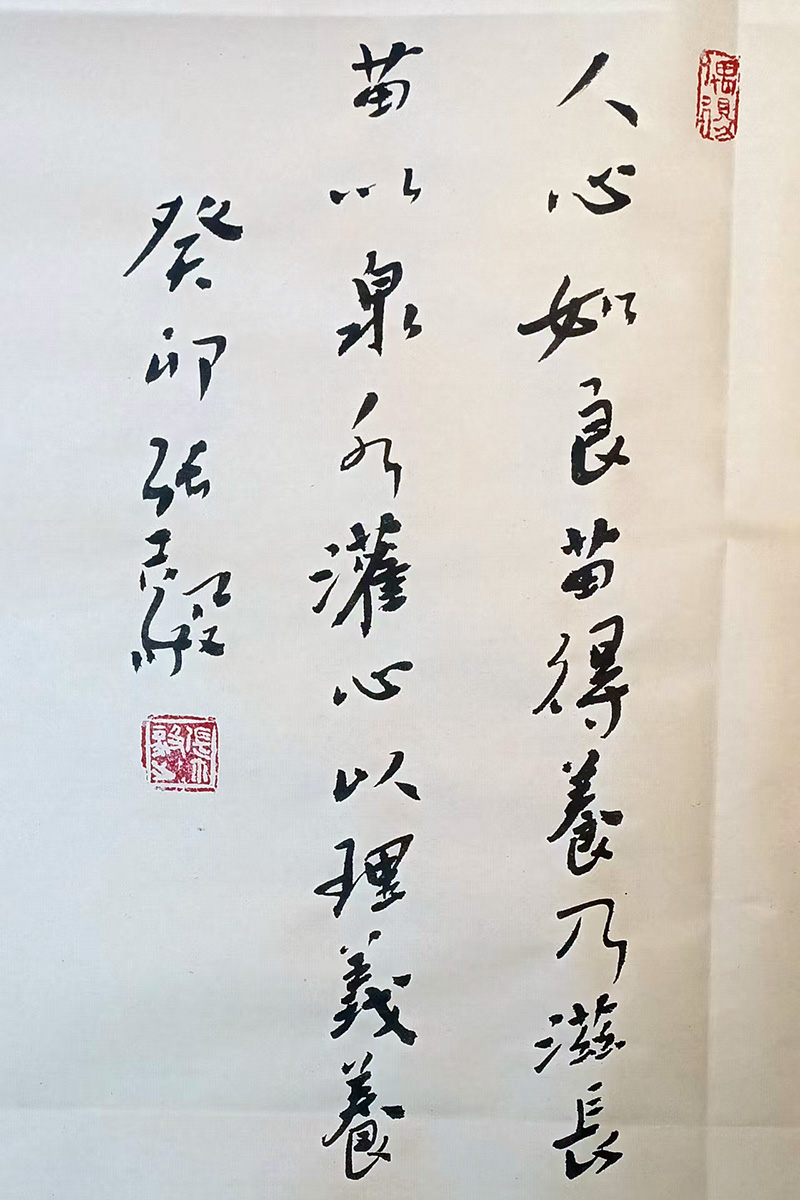 人心如良苗得養乃滋長
苗以泉水灌心以理義養
癸卯張志毅